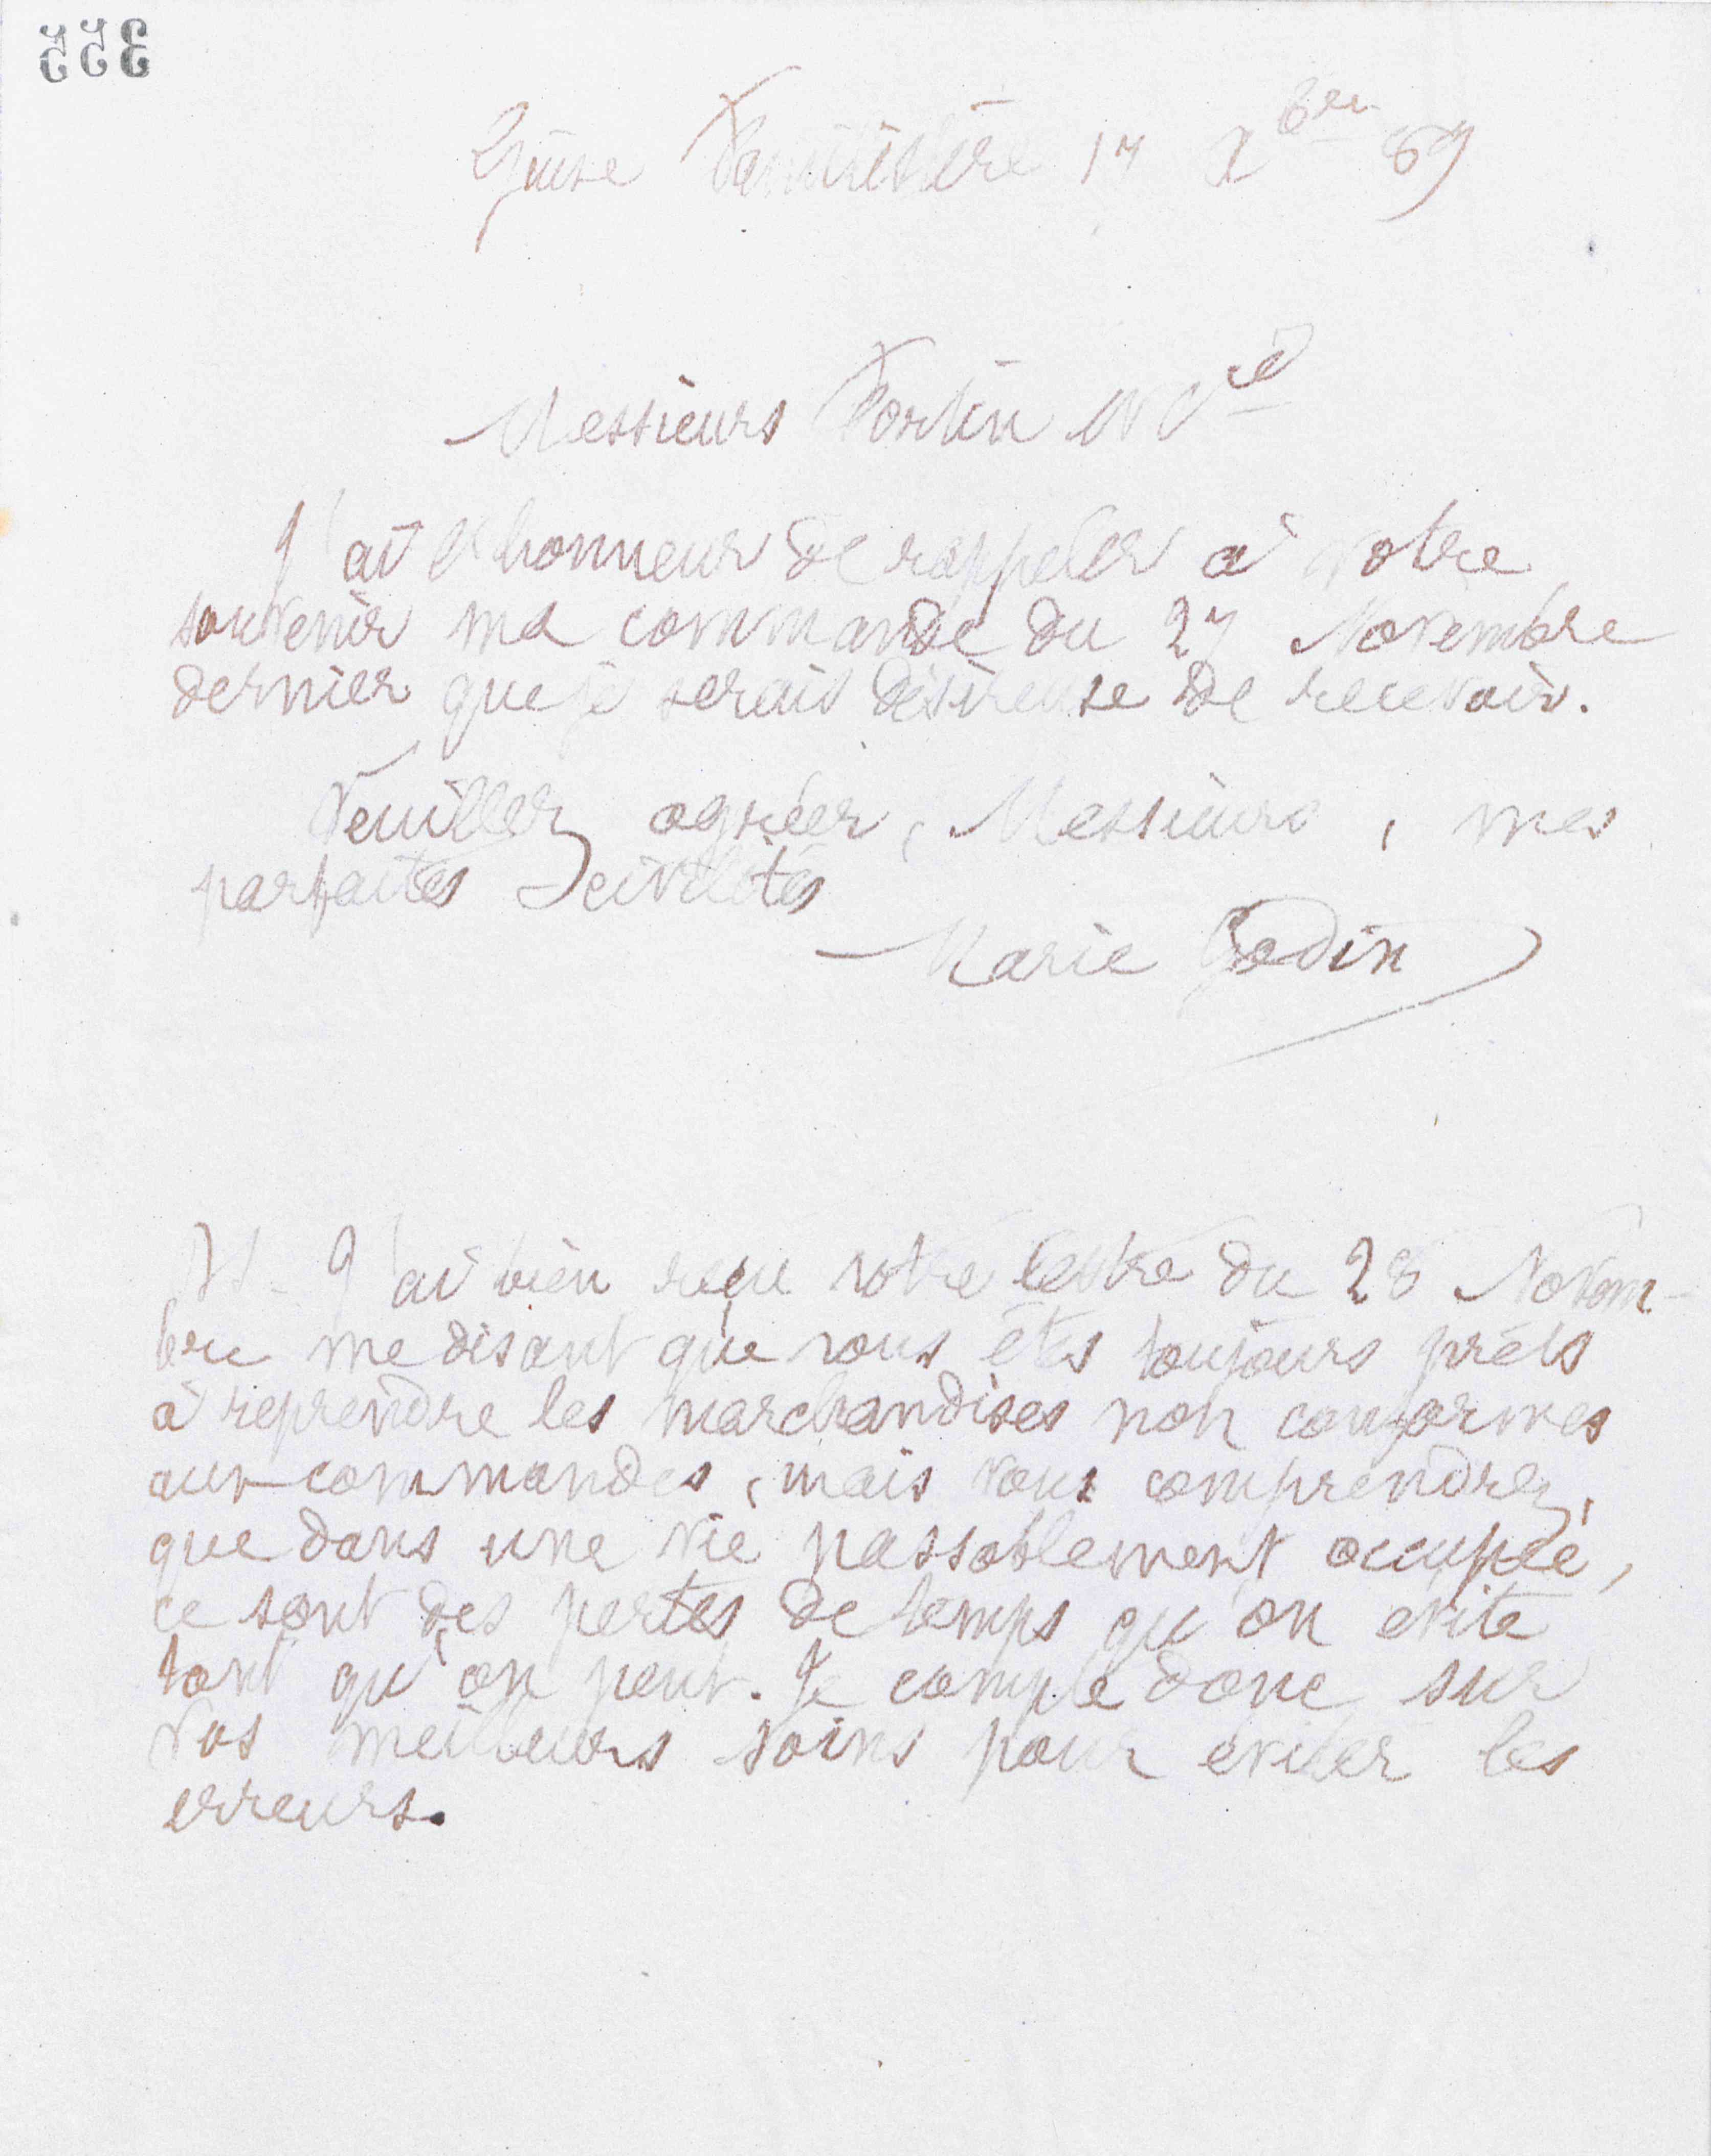 355
Guise Familistère 17 Xbre 89
Messieurs Fortin et Cie
J'ai l'honneur de rappeler à votre
souvenir ma commande du 27 Novembre
dernier que je serais désireuse de recevoir.
Veuillez agréer, Messieurs, mes
parfaites civilités
Marie Godin
J'ai bien reçu votre lettre du 28 Novem-
bre me disant que vous êtes toujours prêts
à reprendre les marchandises non conformes
aux commandes, mais vous comprendrez,
que dans une vie passablement occupée,
ce sont des pertes de temps qu'on évite
tant qu'on peut. Je compte donc sur
vos meilleurs soins pour éviter les
erreurs.